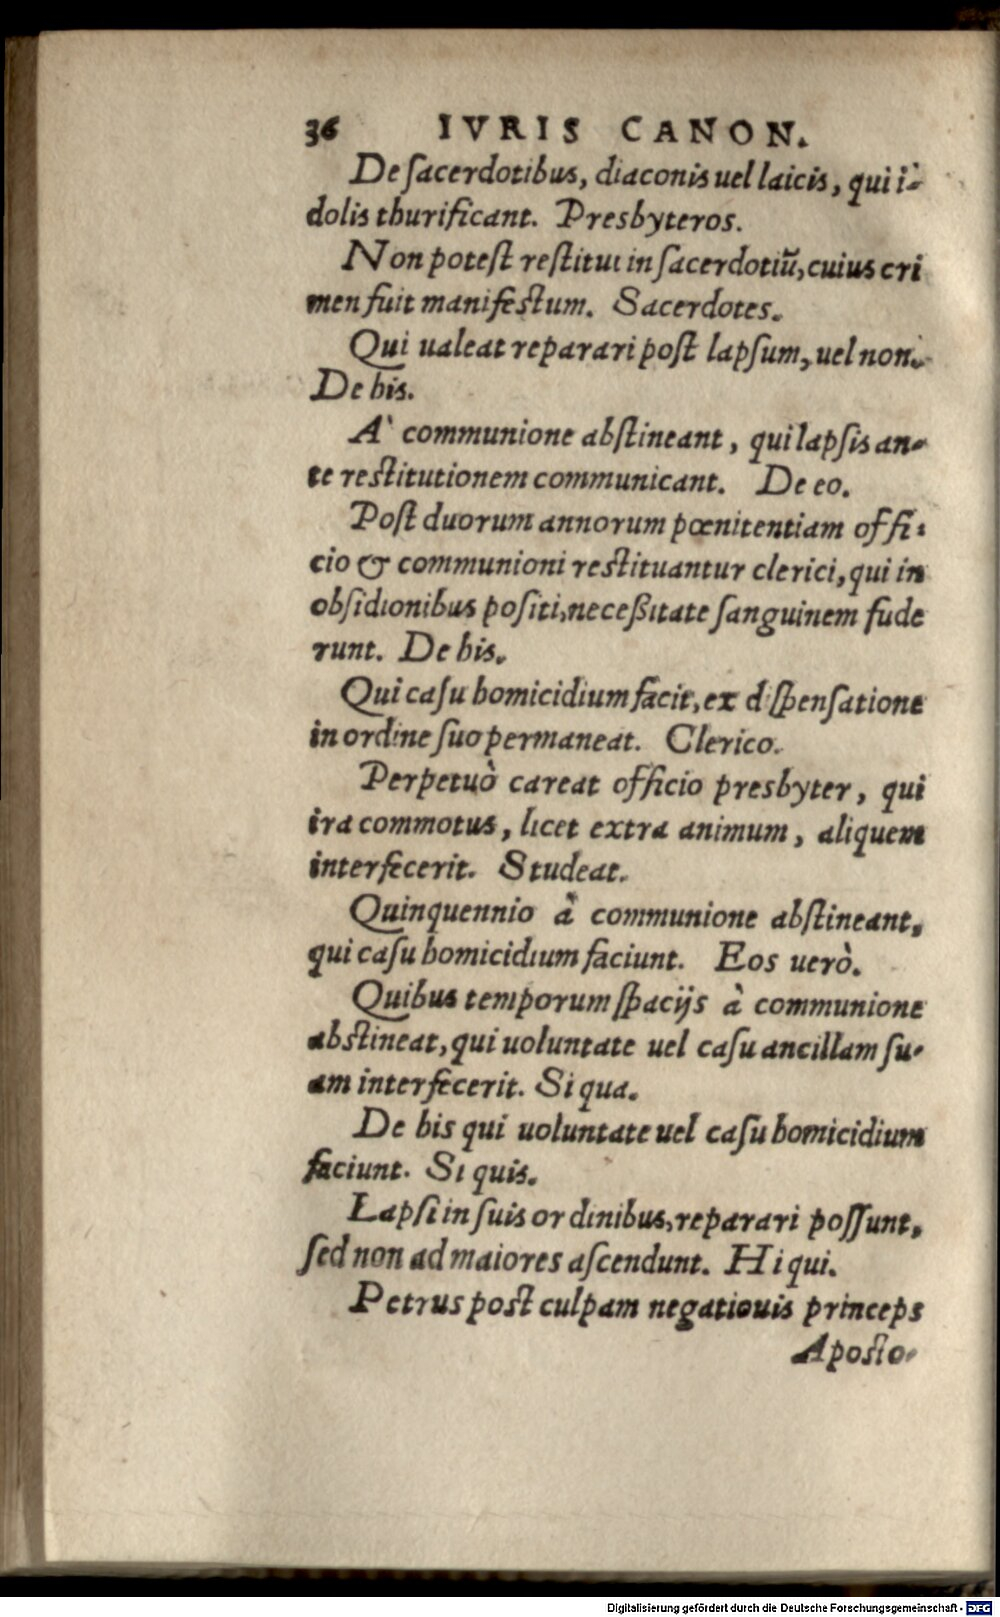 36 IVRIS CANON.
De sacerdotibus, diaconis uel laicis, qui i-
dolis thurificant. Presbyteros.
Non potest restitui in sacerdotiũ, cuius cri
men fuit manifestum. Sacerdotes.
Qui ualeat reparari post lapsum, uel non.
De his.
A` communione abstineant, qui lapsis an-
te restitutionem communicant. De eo.
Post duorum annorum pœnitentiam offi-
cio & communioni restituantur clerici, qui in
obsidionibus positi, neceßitate sanguinem fude
runt. De his.
Qui casu homicidium facit, ex dispensatione
in ordine suo permaneat. Clerico.
Perpetuò careat officio presbyter, qui
ira commotus, licet extra animum, aliquem
interfecerit. Studeat.
Quinquennio à communione abstineant,
qui casu homicidium faciunt. Eos uerò.
Quibus temporum spacijs à communione
abstineat, qui uoluntate uel casu ancillam su-
am interfecerit. Si qua.
De his qui uoluntate uel casu homicidium
faciunt. Si quis.
Lapsi in suis ordinibus, reparari possunt,
sed non ad maiores ascendunt. Hi qui.
Petrus post culpam negatiouis princeps
Aposto-
Digitalisierung gefördert durch die Deutsche Forschungsgemeinschaft - DFG